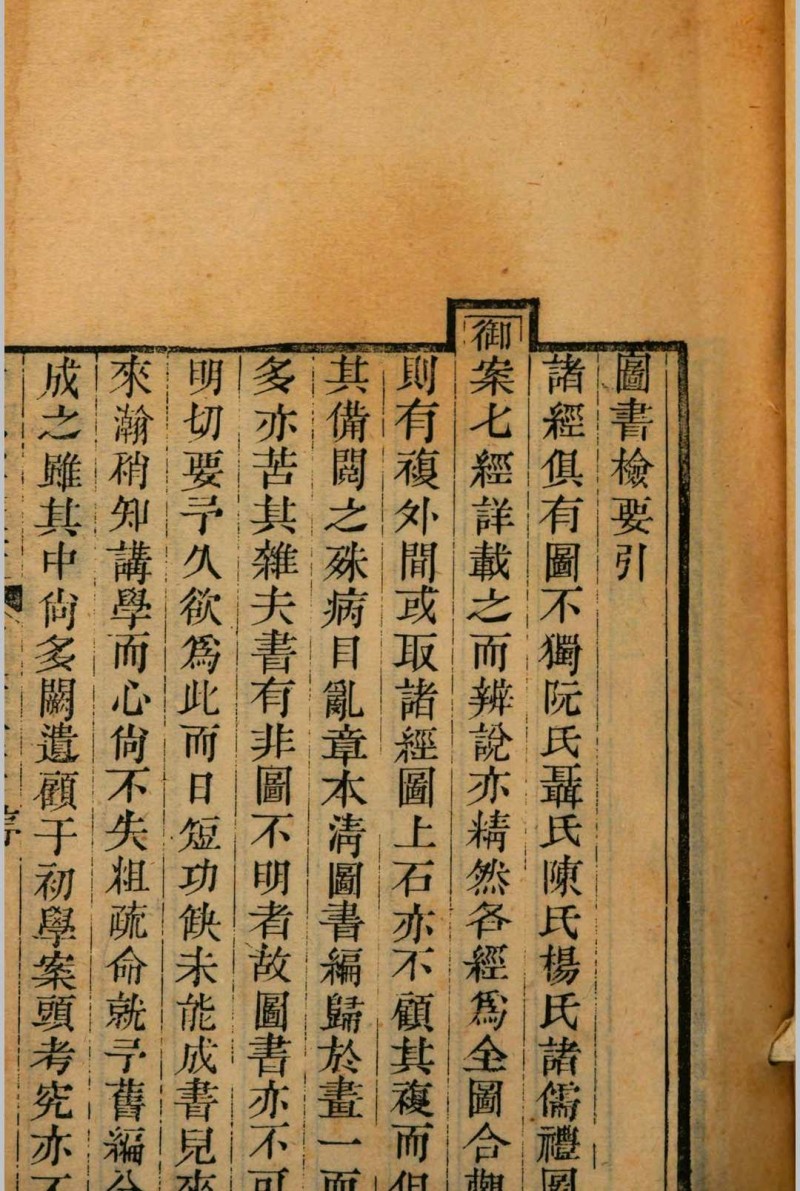 圖書檢要引
諸經俱有圖不獨阮氏聶氏陳氏楊氏諸儒禮圖
御案七經詳載之而辨說亦精然各經爲全圖合觀
則有複外間或取諸經圖上石亦不顧其複而但
其備閱之殊病目亂章本淸圖書編歸於畫一而
多亦苦其雜夫書有非圖不明者故圖書亦不可
明切要予久欲爲此而日短功缺未能成書兒來
來瀚稍知講學而心尙不失粗疏命就予舊編分
成之雖其中尙多闕遺顧于初學案頭考究亦不